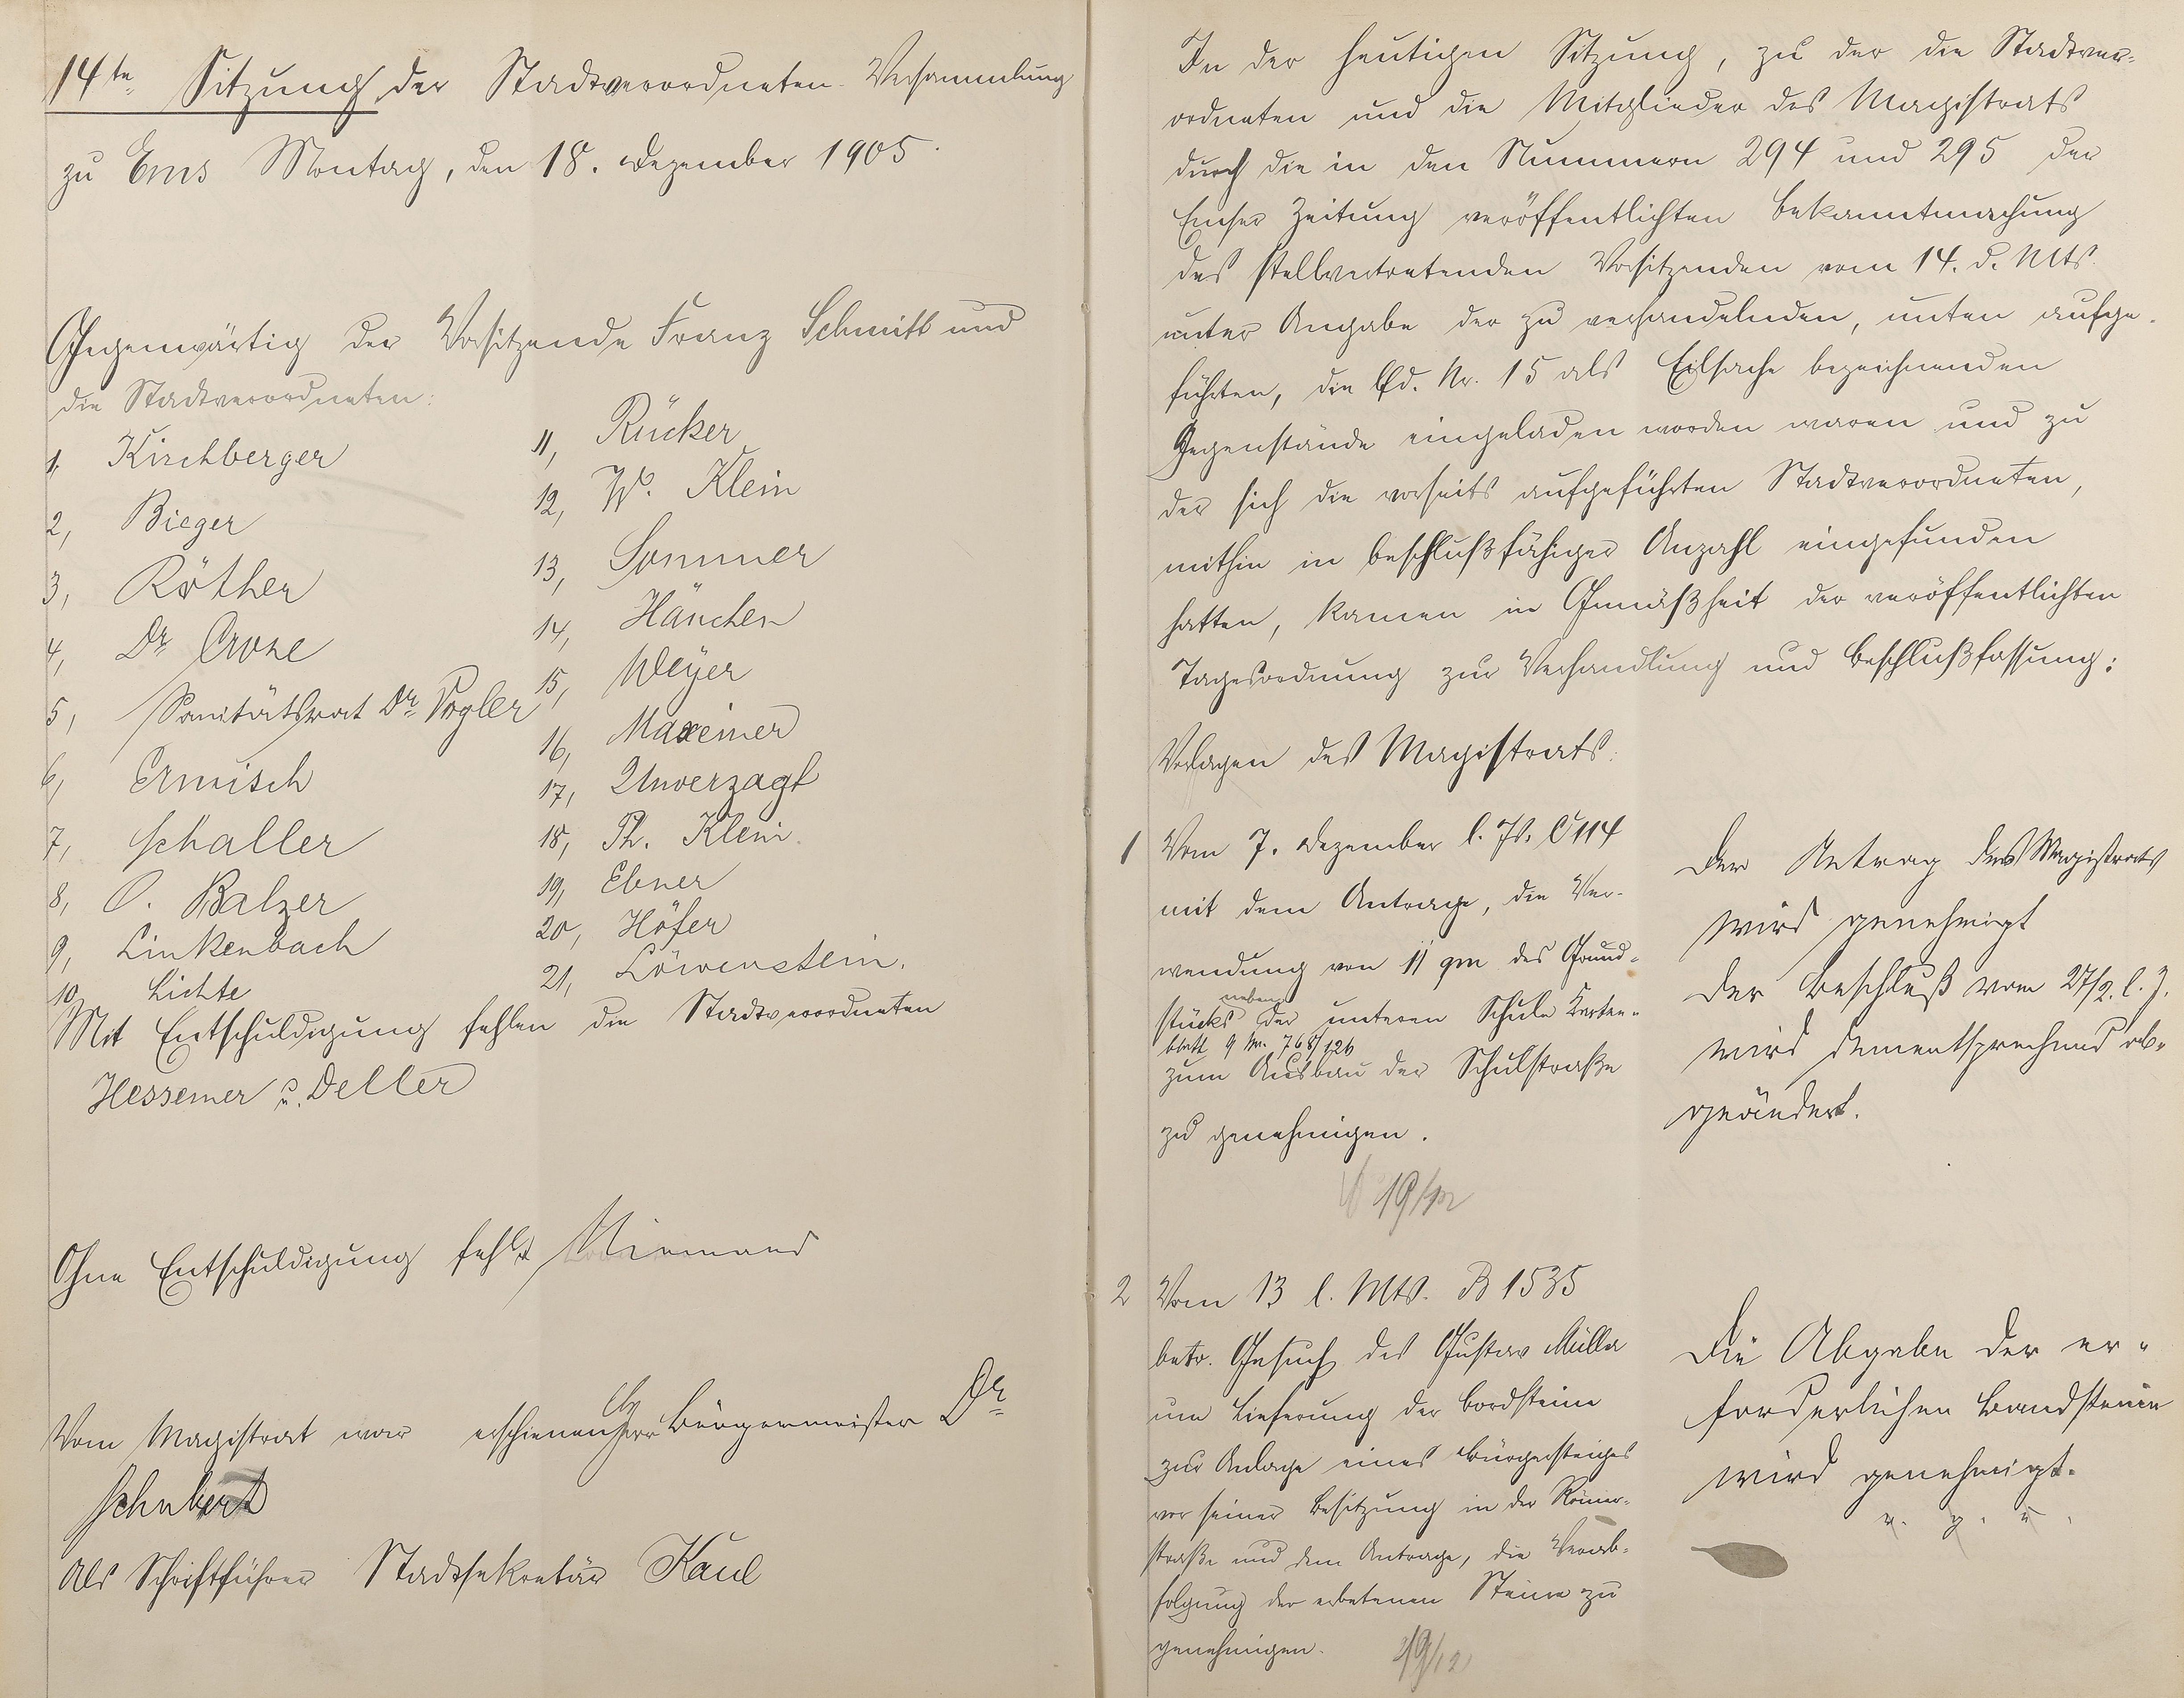 14te Sitzung der Stadtverordneten-Versammlung
zu Ems Montag, den 18. Dezember 1905.
Gegenwärtig der Vorsitzende Franz Schmitt und
die Stadtverordneten:
1, Kirchberger
2, Bieger
3, Röther
4, Dr
5, Sanitätsrat Dr Vogler
6, Ermisch
7, Schaller
8, O. Balzer
9, Linkenbach
10, Lichte
11, Rücker
12, W. Klein
13, Sommer
14, Hänchen
15, Weyer
16, Maxeiner
17, Unverzagt
18, Ph. Klein
19, Ebner
20, Höfer
21, Löwenstein.
Mit Entschuldigung fehlen die Stadtverordneten
Hessemer u. Deller
Ohne Entschuldigung fehlt Niemand
Vom Magistrat war erschienen Herr Bürgermeister Dr
Schubert
Als Schriftführer Stadtsekretär Kaul
In der heutigen Sitzung, zu der die Stadtver-
ordneten und die Mitglieder des Magistrats
durch die in den Nummern 294 und 295 der
Emser Zeitung veröffentlichten Bekanntmachung
des stellvertretenden Vorsitzenden vom 14. d. Mts.
unter Angabe der zu verhandelnden, unten aufge-
führten, die lfd. Nr. 15 als Eilsache bezeichnenden
Gegenstände eingeladen worden waren und zu
der sich die vorseits aufgeführten Stadtverordneten,
mithin in beschlußfähiger Anzahl eingefunden
hatten, kamen in Gemäßheit der veröffentlichten
Tagesordnung zur Verhandlung und Beschlußfassung:
Vorlagen des Magistrats:
1 Vom 7. Dezember l. Js. C 114
mit dem Antrage, die Ver-
wendung von 11 qm des Grund-
stücks neben der unteren Schule Karten-
blatt 9 Nr. 768/126
zum Ausbau der Schulstraße
zu genehmigen.
19/12
Der Antrag des Magistrats
wird genehmigt
Der Beschluß vom 27/2. l. J.
wird dementsprechend ab-
geändert.
2 Vom 13 l. Mts. B 1535
betr. Gesuch des Gustav Müller
um Lieferung der Bordsteine
zur Anlage eines Bürgersteiges
vor seiner Besitzung in der Römer-
straße und dem Antrage, die Verab-
folgung der erbetenen Steine zu
genehmigen.
19/12
Die Abgabe der er-
forderlichen Bandsteine
wird genehmigt.
v. g. u.